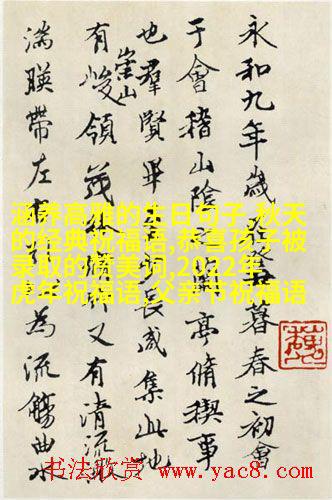 永和九年歲在癸丑暮春之初會
于會稽山陰之蘭亭脩禊事
也羣賢畢至少長咸集此地
有崇山峻領茂林脩竹又有清流激
湍暎帶左右引以為流觴曲水
涵养高雅的生日句子,秋天
的经典祝福语,恭喜孩子被
录取的赞美词,2022年
虎年祝福语,父亲节祝福语
书法欣赏 www.yac8.com